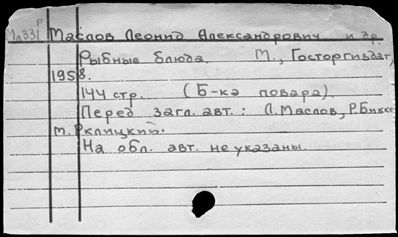 Р
Мл331 Маслов Леонид Александрович и др.
Рыбные блюда. М., Госторгиздат,
1958.
144 стр. (Б-ка повара).
Перед загл. авт.: Л.Маслов, Р.Бикке
М.Рклицкий.
На обл. авт. не указаны.